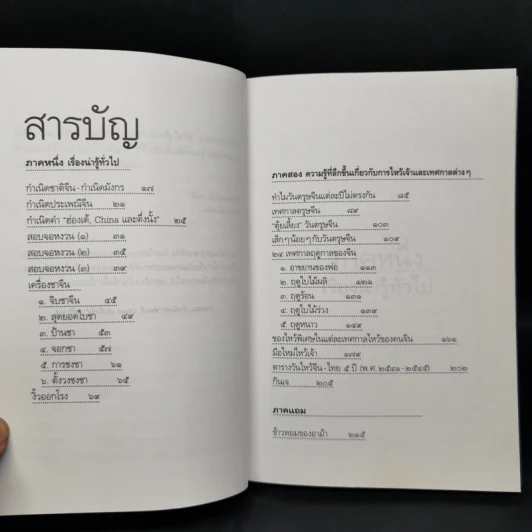 สารบัญ
ภาคหนึ่ง เรื่องน่ารู้ทั่วไป
กำเนิดชาติจีน-กำเนิดมังกร ๑๗
กำเนิดประเพณีจีน ๒๑
กำเนิดคำ "ฮ่องเต้, China และตึ่งนั้ง" ๒๕
สอบจอหงวน (๑) ๓๑
สอบจอหงวน (๒) ๓๕
สอบจอหงวน (๓) ๓๙
เครื่องชาจีน
๑. จิบชาจีน ๔๕
๒. สุดยอดใบชา ๔๙
๓. ป้านชา ๕๓
๔. จอกชา ๕๗
๕. การชงชา ๖๑
๖. ตั้งวงชงชา ๖๕
งิ้วออกโรง ๖๙
ภาคสอง ความรู้ที่ลึกขึ้นเกี่ยวกับการไหว้เจ้าและเทศกาลต่างๆ
ทำไมวันตรุษจีนแต่ละปีไม่ตรงกัน ๘๕
เทศกาลตรุษจีน ๘๙
"ตุ้ยเลี้ยง" วันตรุษจีน ๑๐๓
เล็กๆ น้อยๆ กับวันตรุษจีน ๑๐๙
๒๔ เทศกาลฤดูกาลของจีน
๑. อาขยานของพ่อ ๑๑๓
๒. ฤดูใบไม้ผลิ ๑๒๑
๓. ฤดูร้อน ๑๓๑
๔. ฤดูใบไม้ร่วง ๑๓๙
๕. ฤดูหนาว ๑๔๙
ของไหว้พิเศษในแต่ละเทศกาลไหว้ของคนจีน ๑๖๑
มือใหม่ไหว้เจ้า ๑๗๙
ตารางวันไหว้จีน-ไทย ๕ ปี (พ.ศ. ๒๕๔๑-๒๕๔๕) ๒๐๒
กินเจ ๒๐๕
ภาคแถม
ข้าวหอมของอาม้า ๒๑๕